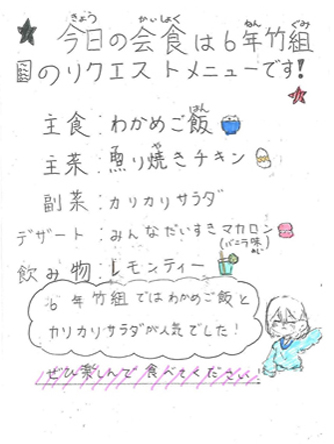 きょう かいしょく ねん ぐみ
今日の会食は6年竹組
のリクエストメニューです!
はん
主食:わかめご飯
や
主菜:照り焼きチキン
副菜:カリカリサラダ
デザート:みんなだいすきマカロン
(バニラ味)
飲み物:レモンティー
6年竹組ではわかめご飯と
カリカリサラダが人気でした!
ぜひ楽しんで食べてください!